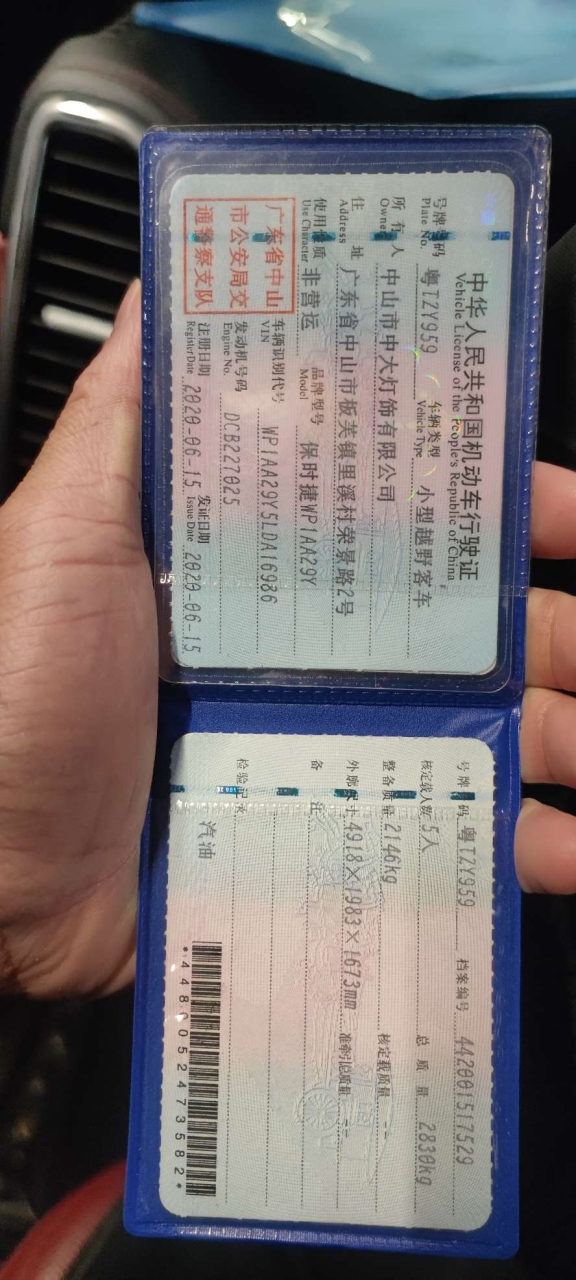 中华人民共和国机动车行驶证
Vehicle License of the People's Republic of China
号牌号码 粤T2Y959 车辆类型 小型越野客车
Plate No. Vehicle Type
所有人 中山市中大灯饰有限公司
Owner
住址 广东省中山市板芙镇里溪村荣景路2号
Address
使用性质 非营运 品牌型号 保时捷WP1AA29Y
Use Character Model
广东省中山
市公安局交
通警察支队
车辆识别代号 WP1AA29Y5LDA16986
VIN
发动机号码 DCB227025
Engine No.
注册日期 2020-06-15 发证日期 2020-06-15
Register Date Issue Date
号牌号码 粤T2Y959 档案编号 442001517529
核定载人数 5人 总质量 2830kg
整备质量 2146kg 核定载质量 --
外廓尺寸 4918×1983×1673mm 准牵引总质量 --
备注
检验记录
汽油
*4480052473582*